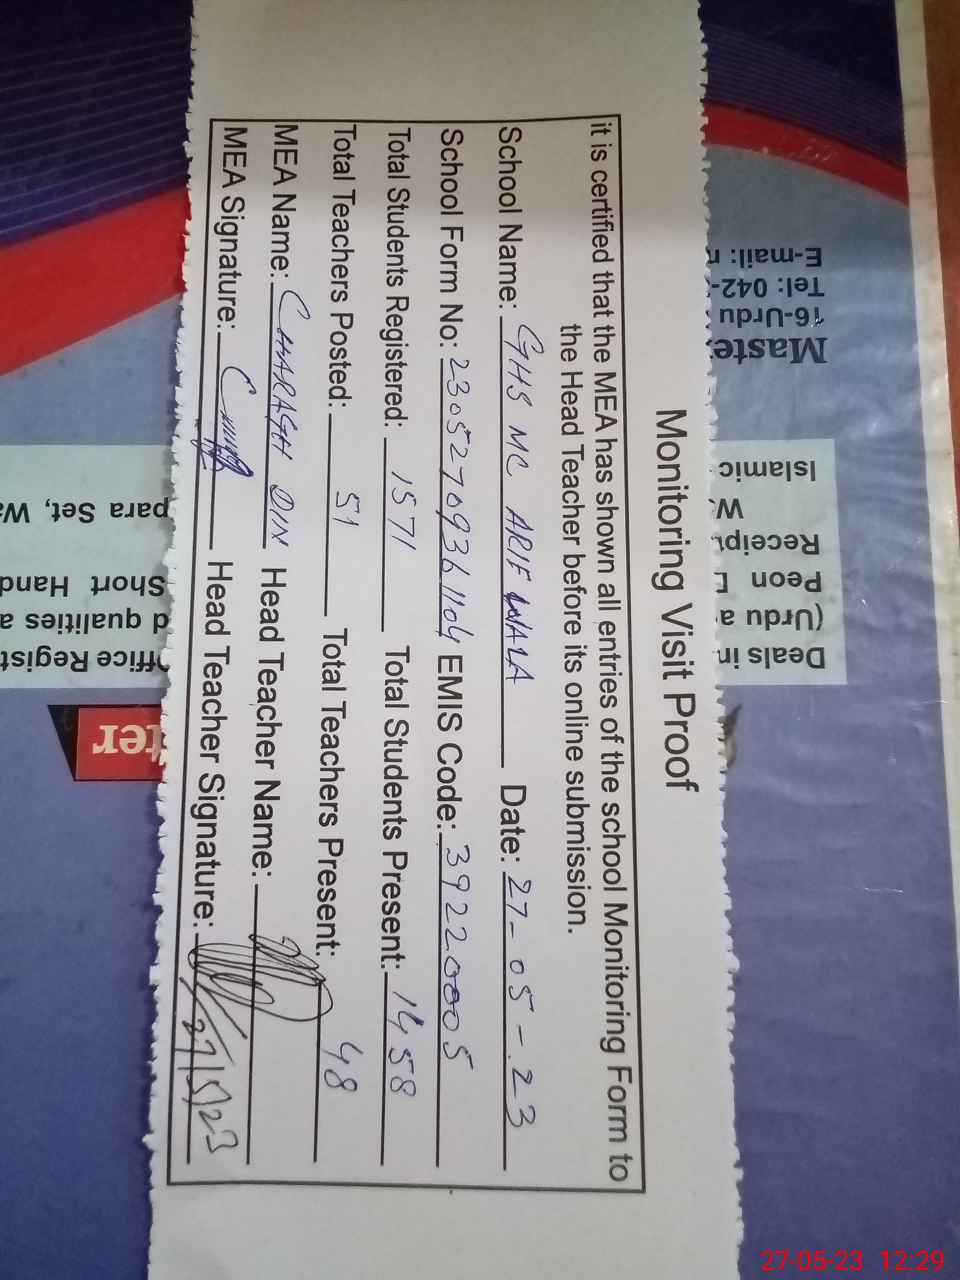 Monitoring Visit Proof
it is certified that the MEA has shown all entries of the school Monitoring Form to
the Head Teacher before its online submission.
School Name: GHS MC ARIF WALA Date: 27-05-23
School Form No: 23052709361104 EMIS Code: 39220005
Total Students Registered: 1571 Total Students Present: 1458
Total Teachers Posted: 51 Total Teachers Present: 48
MEA Name: CHARAGH DIN Head Teacher Name:
MEA Signature: Head Teacher Signature: 27/5/23
Maste
16-Urdu
Tel: 042-
E-mail:
Deals in
(Urdu a
Peon
Receip
W
Islamic
ffice Regist
d qualities a
Short Hand
para Set, Wa
ter
27-05-23 12:29